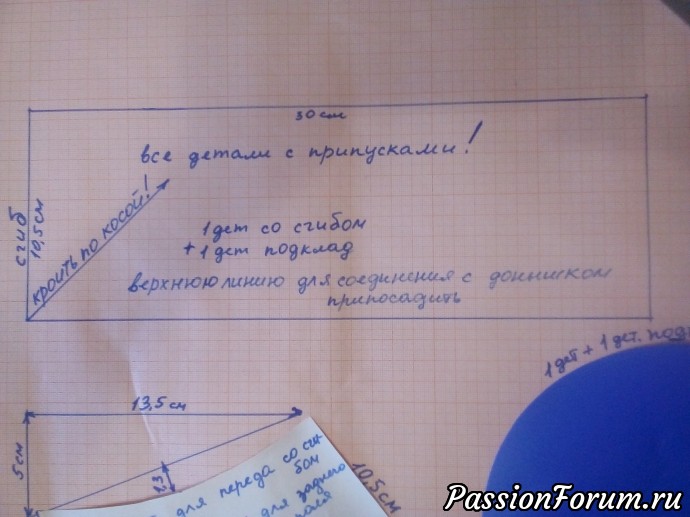 30 см
все детали с припусками!
сгиб
10,5 см
кроить по косой!
1 дет со сгибом
+ 1 дет подклад
верхнюю линию для соединения с донышком
припосадить
1 дет + 1 дет. под
13,5 см
5 см
для переда со сги-
бом
для заднего
10,5 см
PassionForum.ru